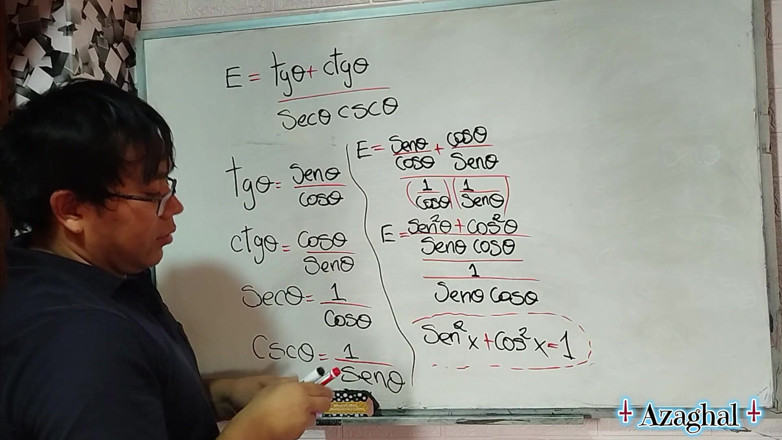 E = tgθ + ctgθ
secθ cscθ
tgθ = senθ
cosθ
ctgθ = cosθ
senθ
secθ = 1
cosθ
cscθ = 1
senθ
E = senθ + cosθ
cosθ senθ
(1) (1)
cosθ senθ
E = sen²θ + cos²θ
senθ cosθ
1
senθ cosθ
sen²x + cos²x = 1
Azaghal